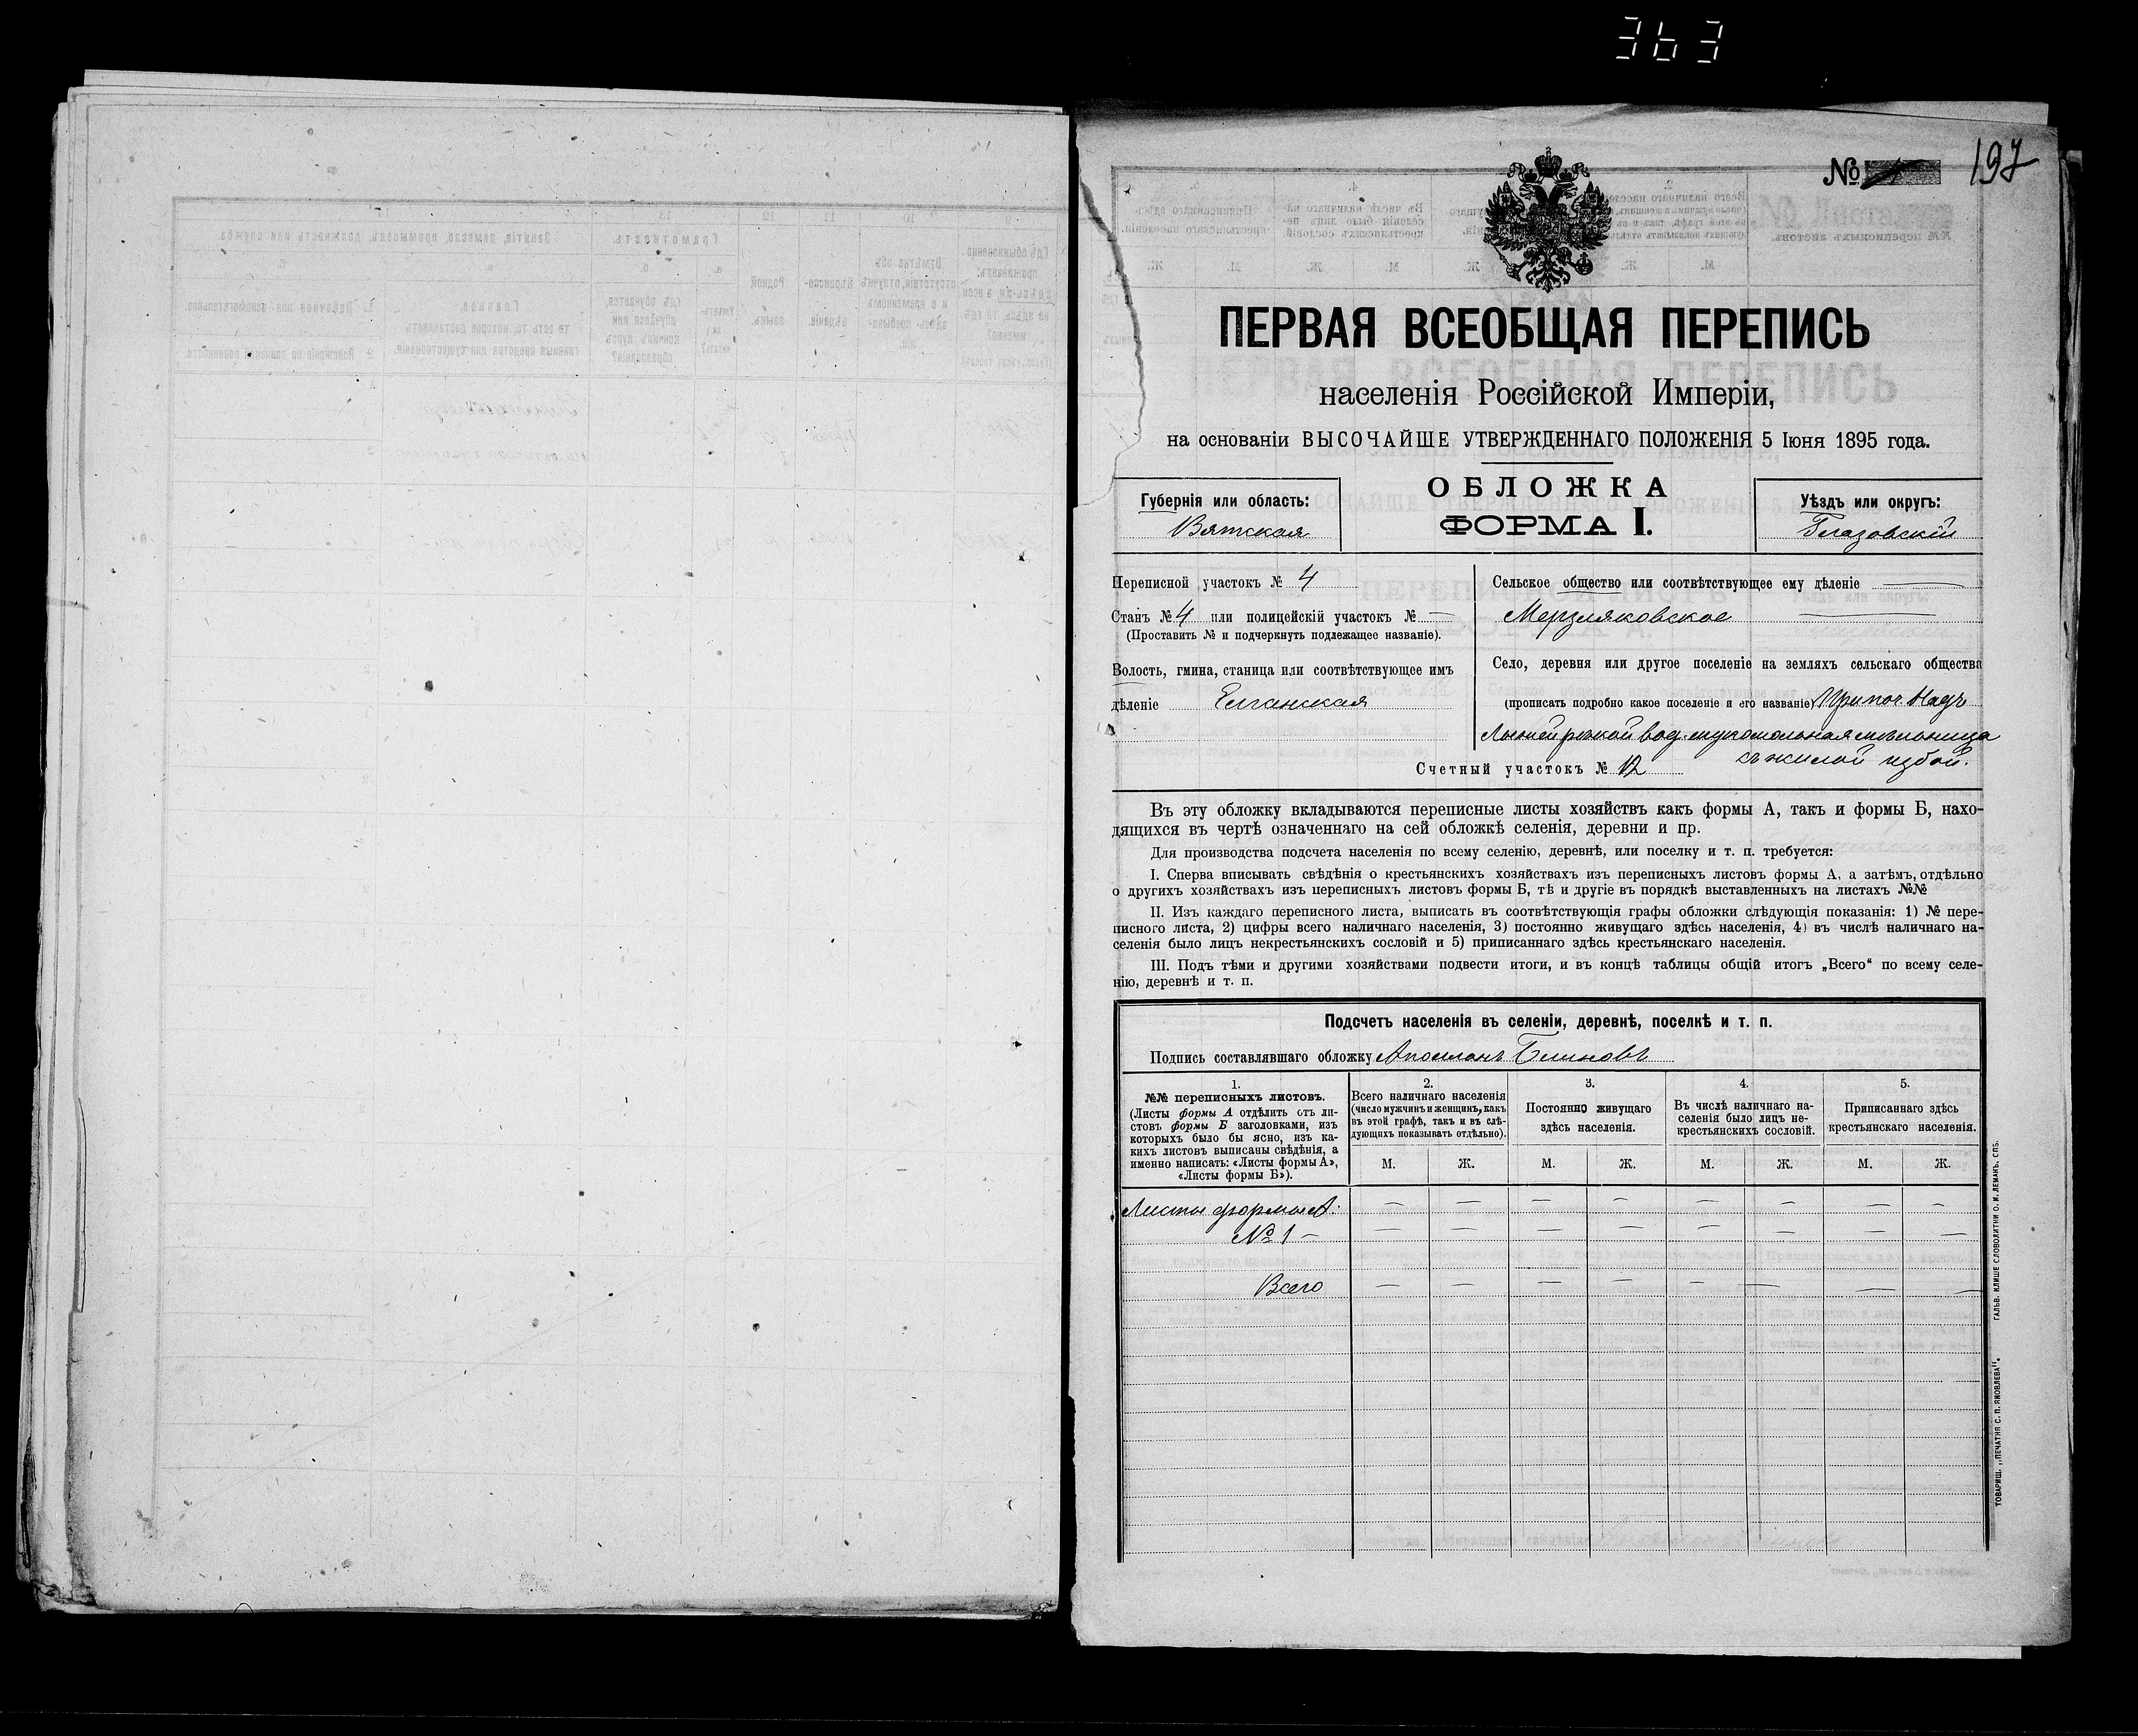 363
197
№
ПЕРВАЯ ВСЕОБЩАЯ ПЕРЕПИСЬ
населенія Россійской Имперіи,
на основаніи ВЫСОЧАЙШЕ УТВЕРЖДЕННАГО ПОЛОЖЕНІЯ 5 Іюня 1895 года.
ОБЛОЖКА
ФОРМА I.
Губернія или область:
Вятская
Уѣздъ или округъ:
Глазовскій
Переписной участокъ № 4
Станъ № 4 или полицейскій участокъ № —
(Проставить № и подчеркнуть подлежащее названіе).
Волость, гмина, станица или соотвѣтствующее имъ
дѣленіе Елганская
Сельское общество или соотвѣтствующее ему дѣленіе —
Мерзляковское —
Село, деревня или другое поселеніе на земляхъ сельскаго общества
(прописать подробно какое поселеніе и его названіе) При поч. Надъ
рѣкой вод. мукомольная мельница
съ жилой избой.
Счетный участокъ № 12
Въ эту обложку вкладываются переписные листы хозяйствъ какъ формы А, такъ и формы Б, нахо-
дящихся въ чертѣ означеннаго на сей обложкѣ селенія, деревни и пр.
Для производства подсчета населенія по всему селенію, деревнѣ, или поселку и т. п. требуется:
I. Сперва вписывать свѣдѣнія о крестьянскихъ хозяйствахъ изъ переписныхъ листовъ формы А, а затѣмъ, отдѣльно
о другихъ хозяйствахъ изъ переписныхъ листовъ формы Б, тѣ и другіе въ порядкѣ выставленныхъ на листахъ №№
II. Изъ каждаго переписного листа, выписать въ соотвѣтствующія графы обложки слѣдующія показанія: 1) № пере-
писного листа, 2) цифры всего наличнаго населенія, 3) постоянно живущаго здѣсь населенія, 4) въ числѣ наличнаго на-
селенія было лицъ некрестьянскихъ сословій и 5) приписаннаго здѣсь крестьянскаго населенія.
III. Подъ тѣми и другими хозяйствами подвести итоги, и въ концѣ таблицы общій итогъ „Всего“ по всему селе-
нію, деревнѣ и т. п.
Подсчетъ населенія въ селеніи, деревнѣ, поселкѣ и т. п.
Подпись составлявшаго обложку Аполлонъ Блиновъ
1.
№№ переписныхъ листовъ.
(Листы формы А отдѣлить отъ ли-
стовъ формы Б заголовками, изъ
которыхъ было бы ясно, изъ ка-
кихъ листовъ выписаны свѣдѣнія, а
именно написать: «Листы формы А»,
«Листы формы Б»).
2.
Всего наличнаго населенія
(число мужчинъ и женщинъ, какъ
въ этой графѣ, такъ и въ слѣ-
дующихъ показывать отдѣльно).
3.
Постоянно живущаго
здѣсь населенія.
4.
Въ числѣ наличнаго на-
селенія было лицъ не-
крестьянскихъ сословій.
5.
Приписаннаго здѣсь
крестьянскаго населенія.
М. Ж. М. Ж. М. Ж. М. Ж.
Листы формы А: — — — — — — — —
№ 1 — — — — — — — — —
Всего — — — — — — — —
ТОВАРИЩ. „ПЕЧАТНЯ С. П. ЯКОВЛЕВА“. ГАЛЬВ. КЛИШЕ СЛОВОЛИТНИ О. И. ЛЕМАНЪ, СПБ.